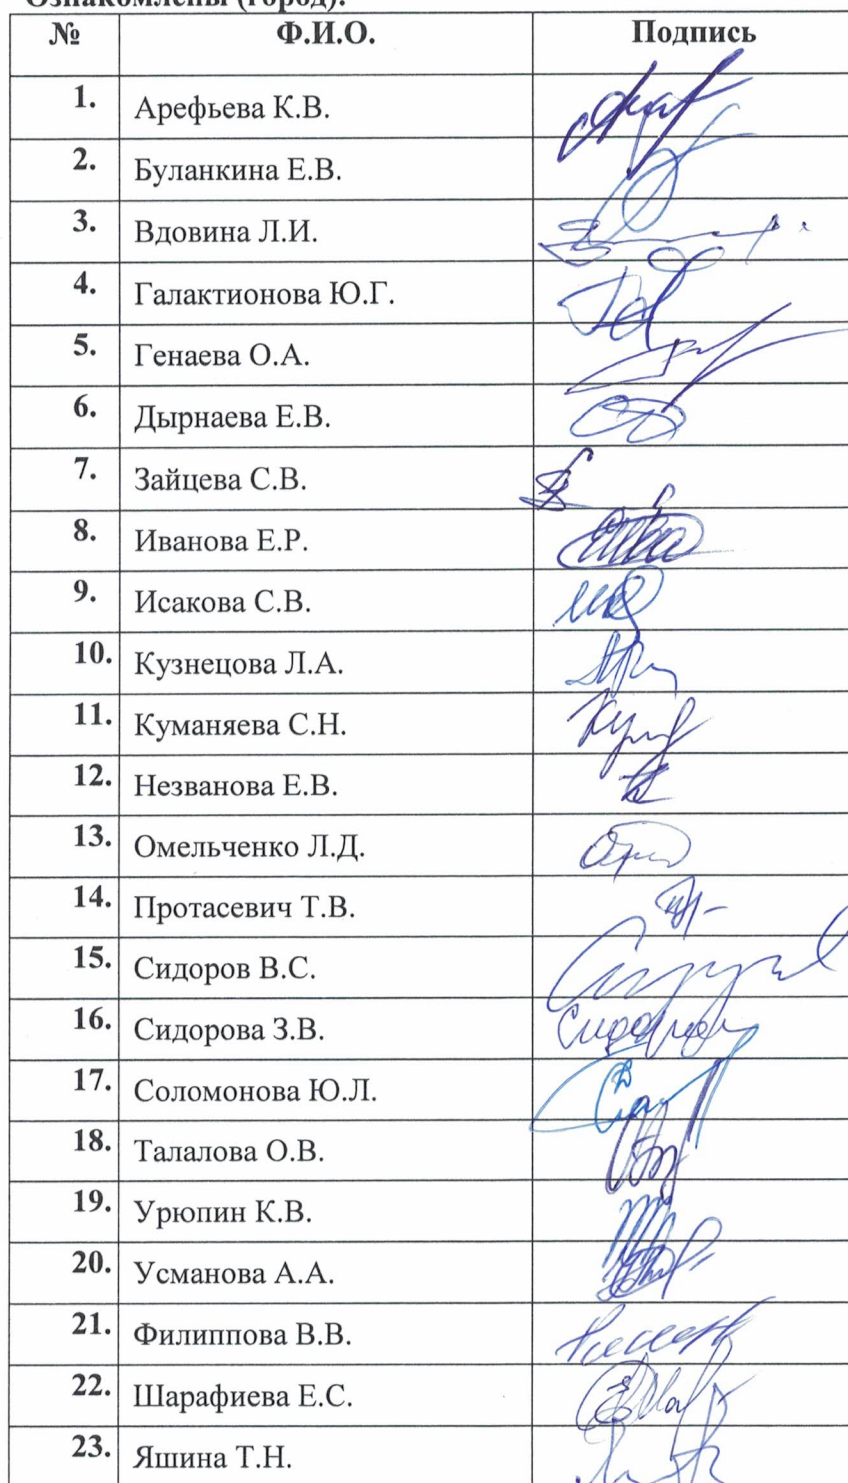 Ознакомлены (город):
№ Ф.И.О. Подпись
1. Арефьева К.В.
2. Буланкина Е.В.
3. Вдовина Л.И.
4. Галактионова Ю.Г.
5. Генаева О.А.
6. Дырнаева Е.В.
7. Зайцева С.В.
8. Иванова Е.Р.
9. Исакова С.В.
10. Кузнецова Л.А.
11. Куманяева С.Н.
12. Незванова Е.В.
13. Омельченко Л.Д.
14. Протасевич Т.В.
15. Сидоров В.С.
16. Сидорова З.В.
17. Соломонова Ю.Л.
18. Талалова О.В.
19. Урюпин К.В.
20. Усманова А.А.
21. Филиппова В.В.
22. Шарафиева Е.С.
23. Яшина Т.Н.